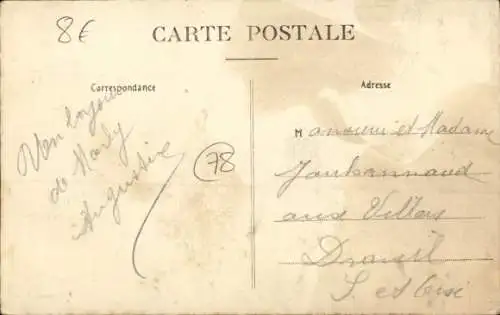 8€
CARTE POSTALE
Correspondance
Un bonjour
de Marly
Augustine
78
Adresse
Monsieur et Madame
aux Villars
Draveil
S. et Oise